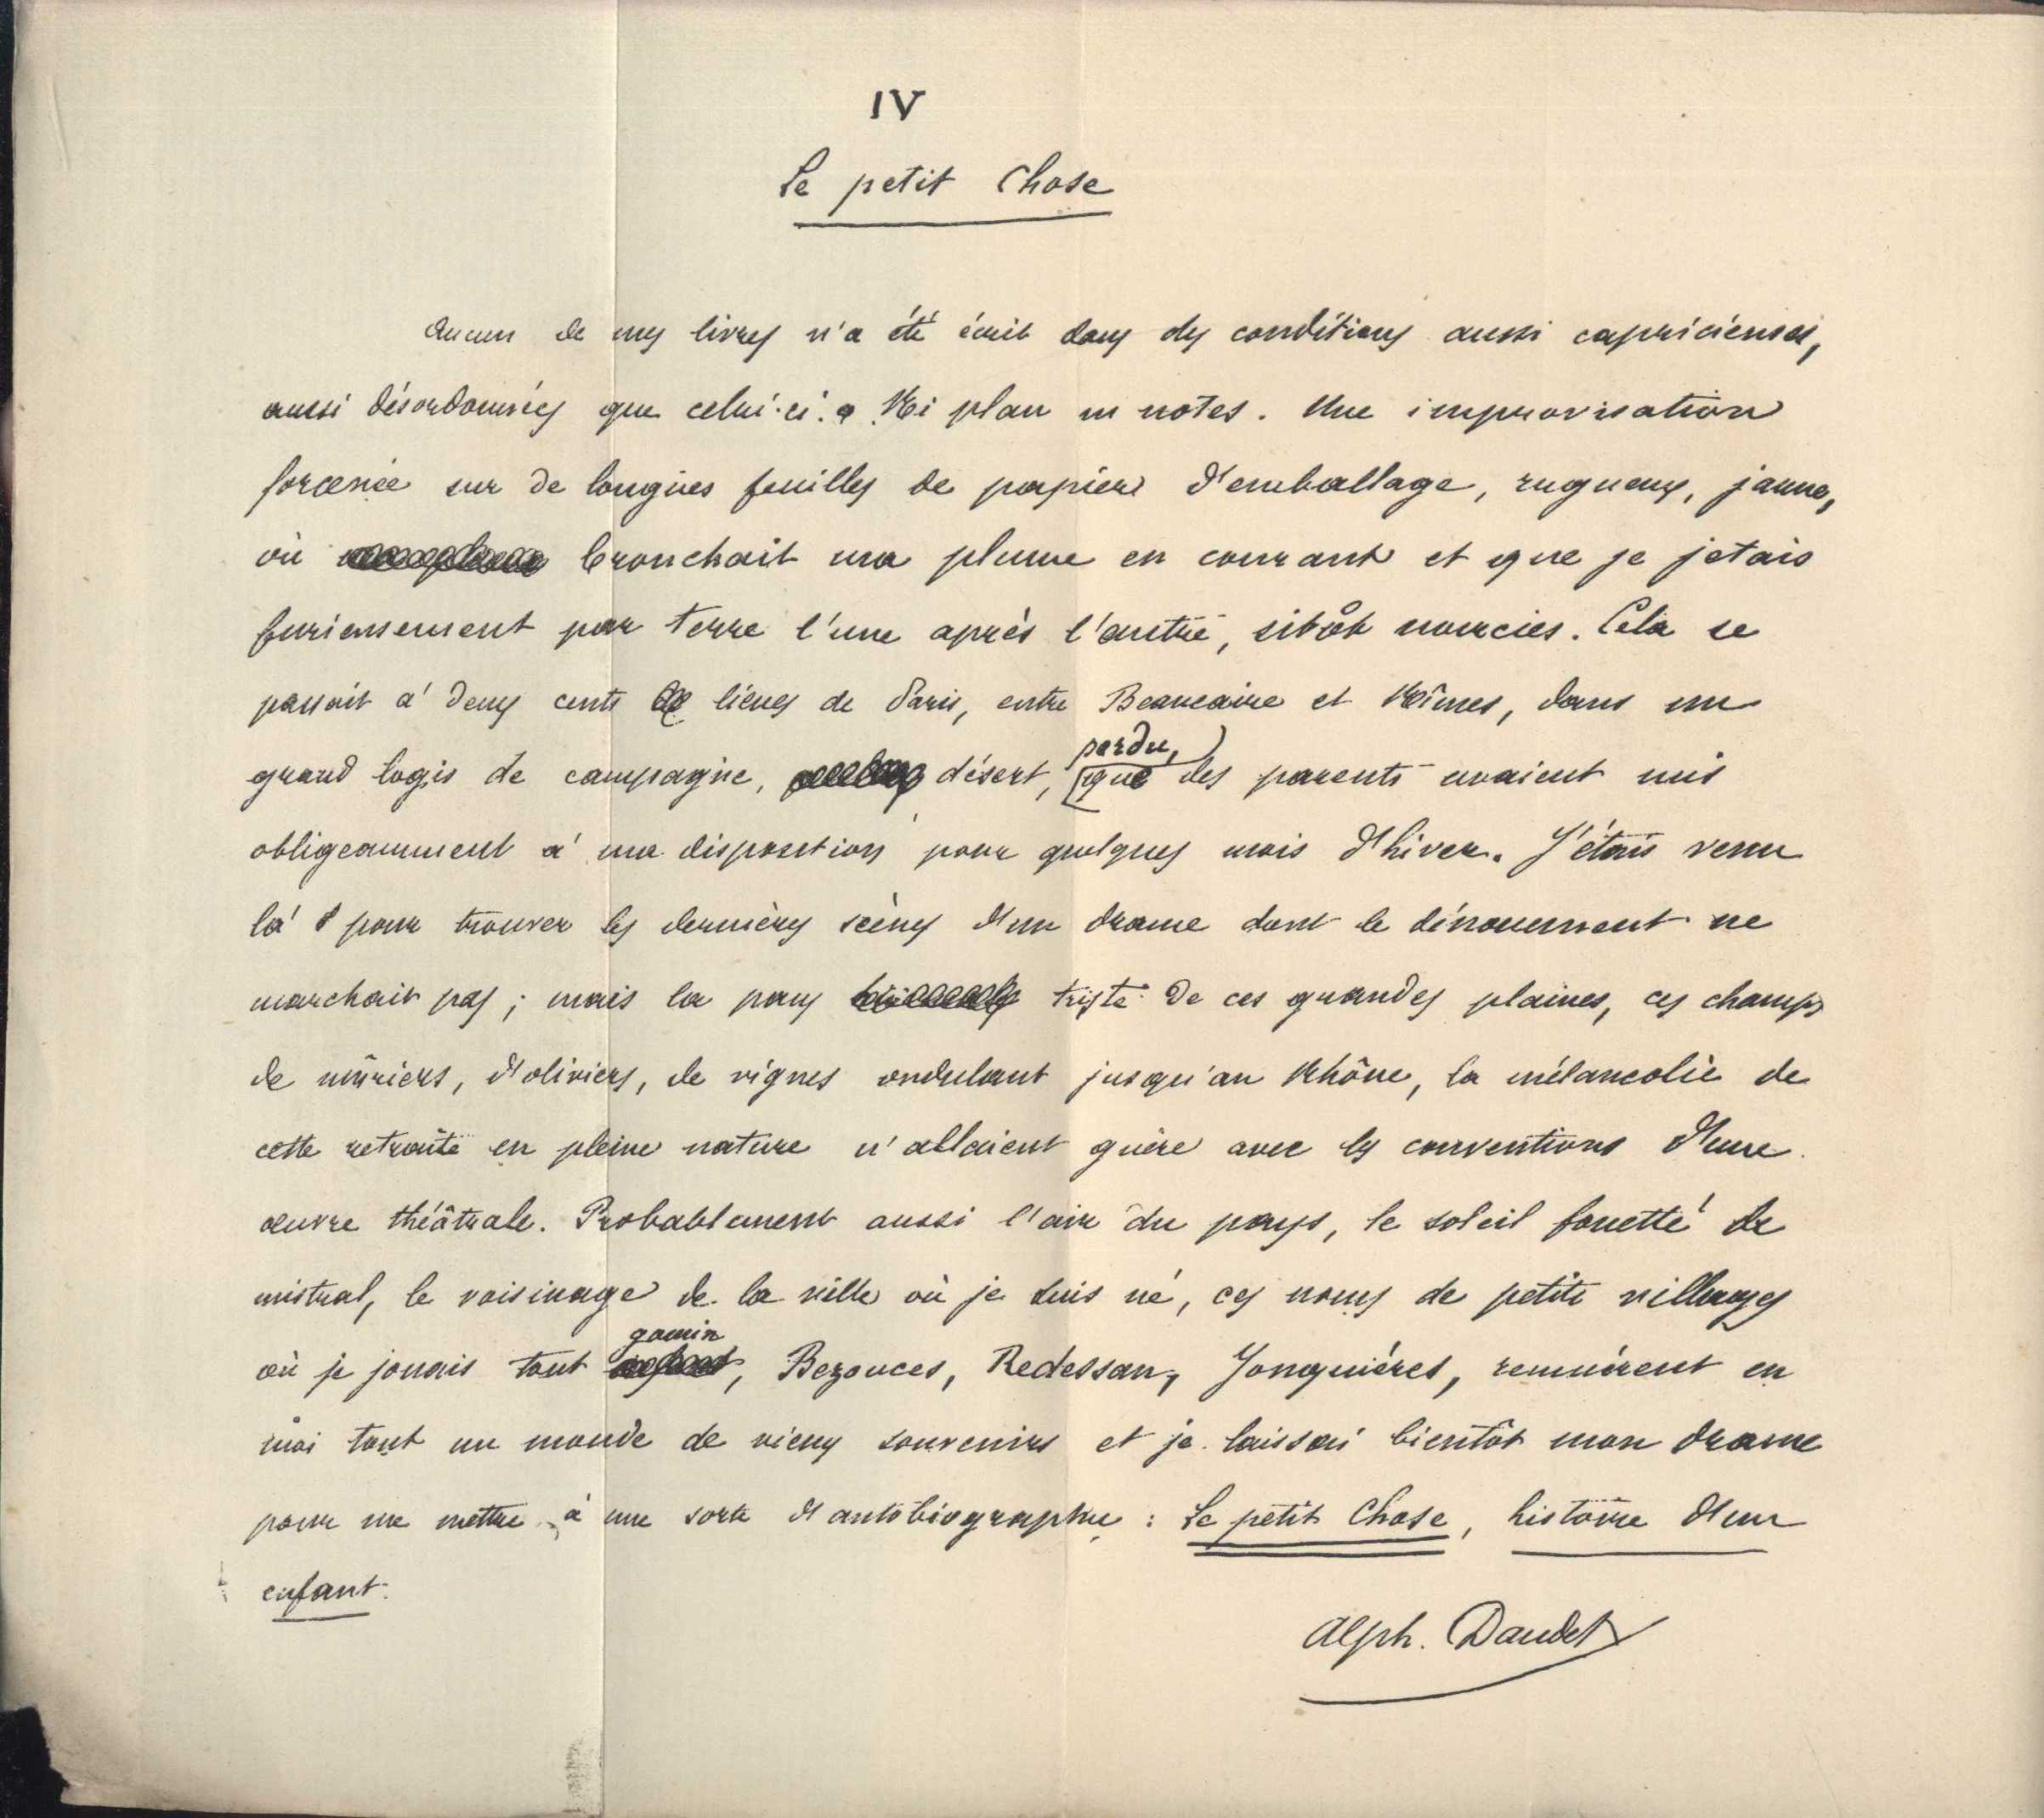 IV
Le petit Chose
Aucun de mes livres n'a été écrit dans des conditions aussi capricieuses,
aussi désordonnées que celui-ci. Ni plan ni notes. Une improvisation
forcenée sur de longues feuilles de papier d'emballage, rugueux, jaune,
où bronchait ma plume en courant et que je jetais
furieusement par terre l'une après l'autre, sitôt noircies. Cela se
passait à deux cents lieues de Paris, entre Beaucaire et Nîmes, dans un
grand logis de campagne, désert, perdu, que des parents avaient mis
obligeamment à ma disposition pour quelques mois d'hiver. J'étais venu
là pour trouver les dernières scènes d'un drame dont le dénouement ne
marchait pas ; mais la paix triste de ces grandes plaines, ces champs
de mûriers, d'oliviers, de vignes ondulant jusqu'au Rhône, la mélancolie de
cette retraite en pleine nature n'allaient guère avec les conventions d'une
œuvre théâtrale. Probablement aussi l'air du pays, le soleil fouetté de
mistral, le voisinage de la ville où je suis né, ces noms de petits villages
où je jouais tout gamin, Bezouces, Redessan, Jonquières, remuèrent en
moi tout un monde de vieux souvenirs et je laissai bientôt mon drame
pour me mettre à une sorte d'autobiographie : Le petit Chose, histoire d'un
enfant.
Alph. Daudet